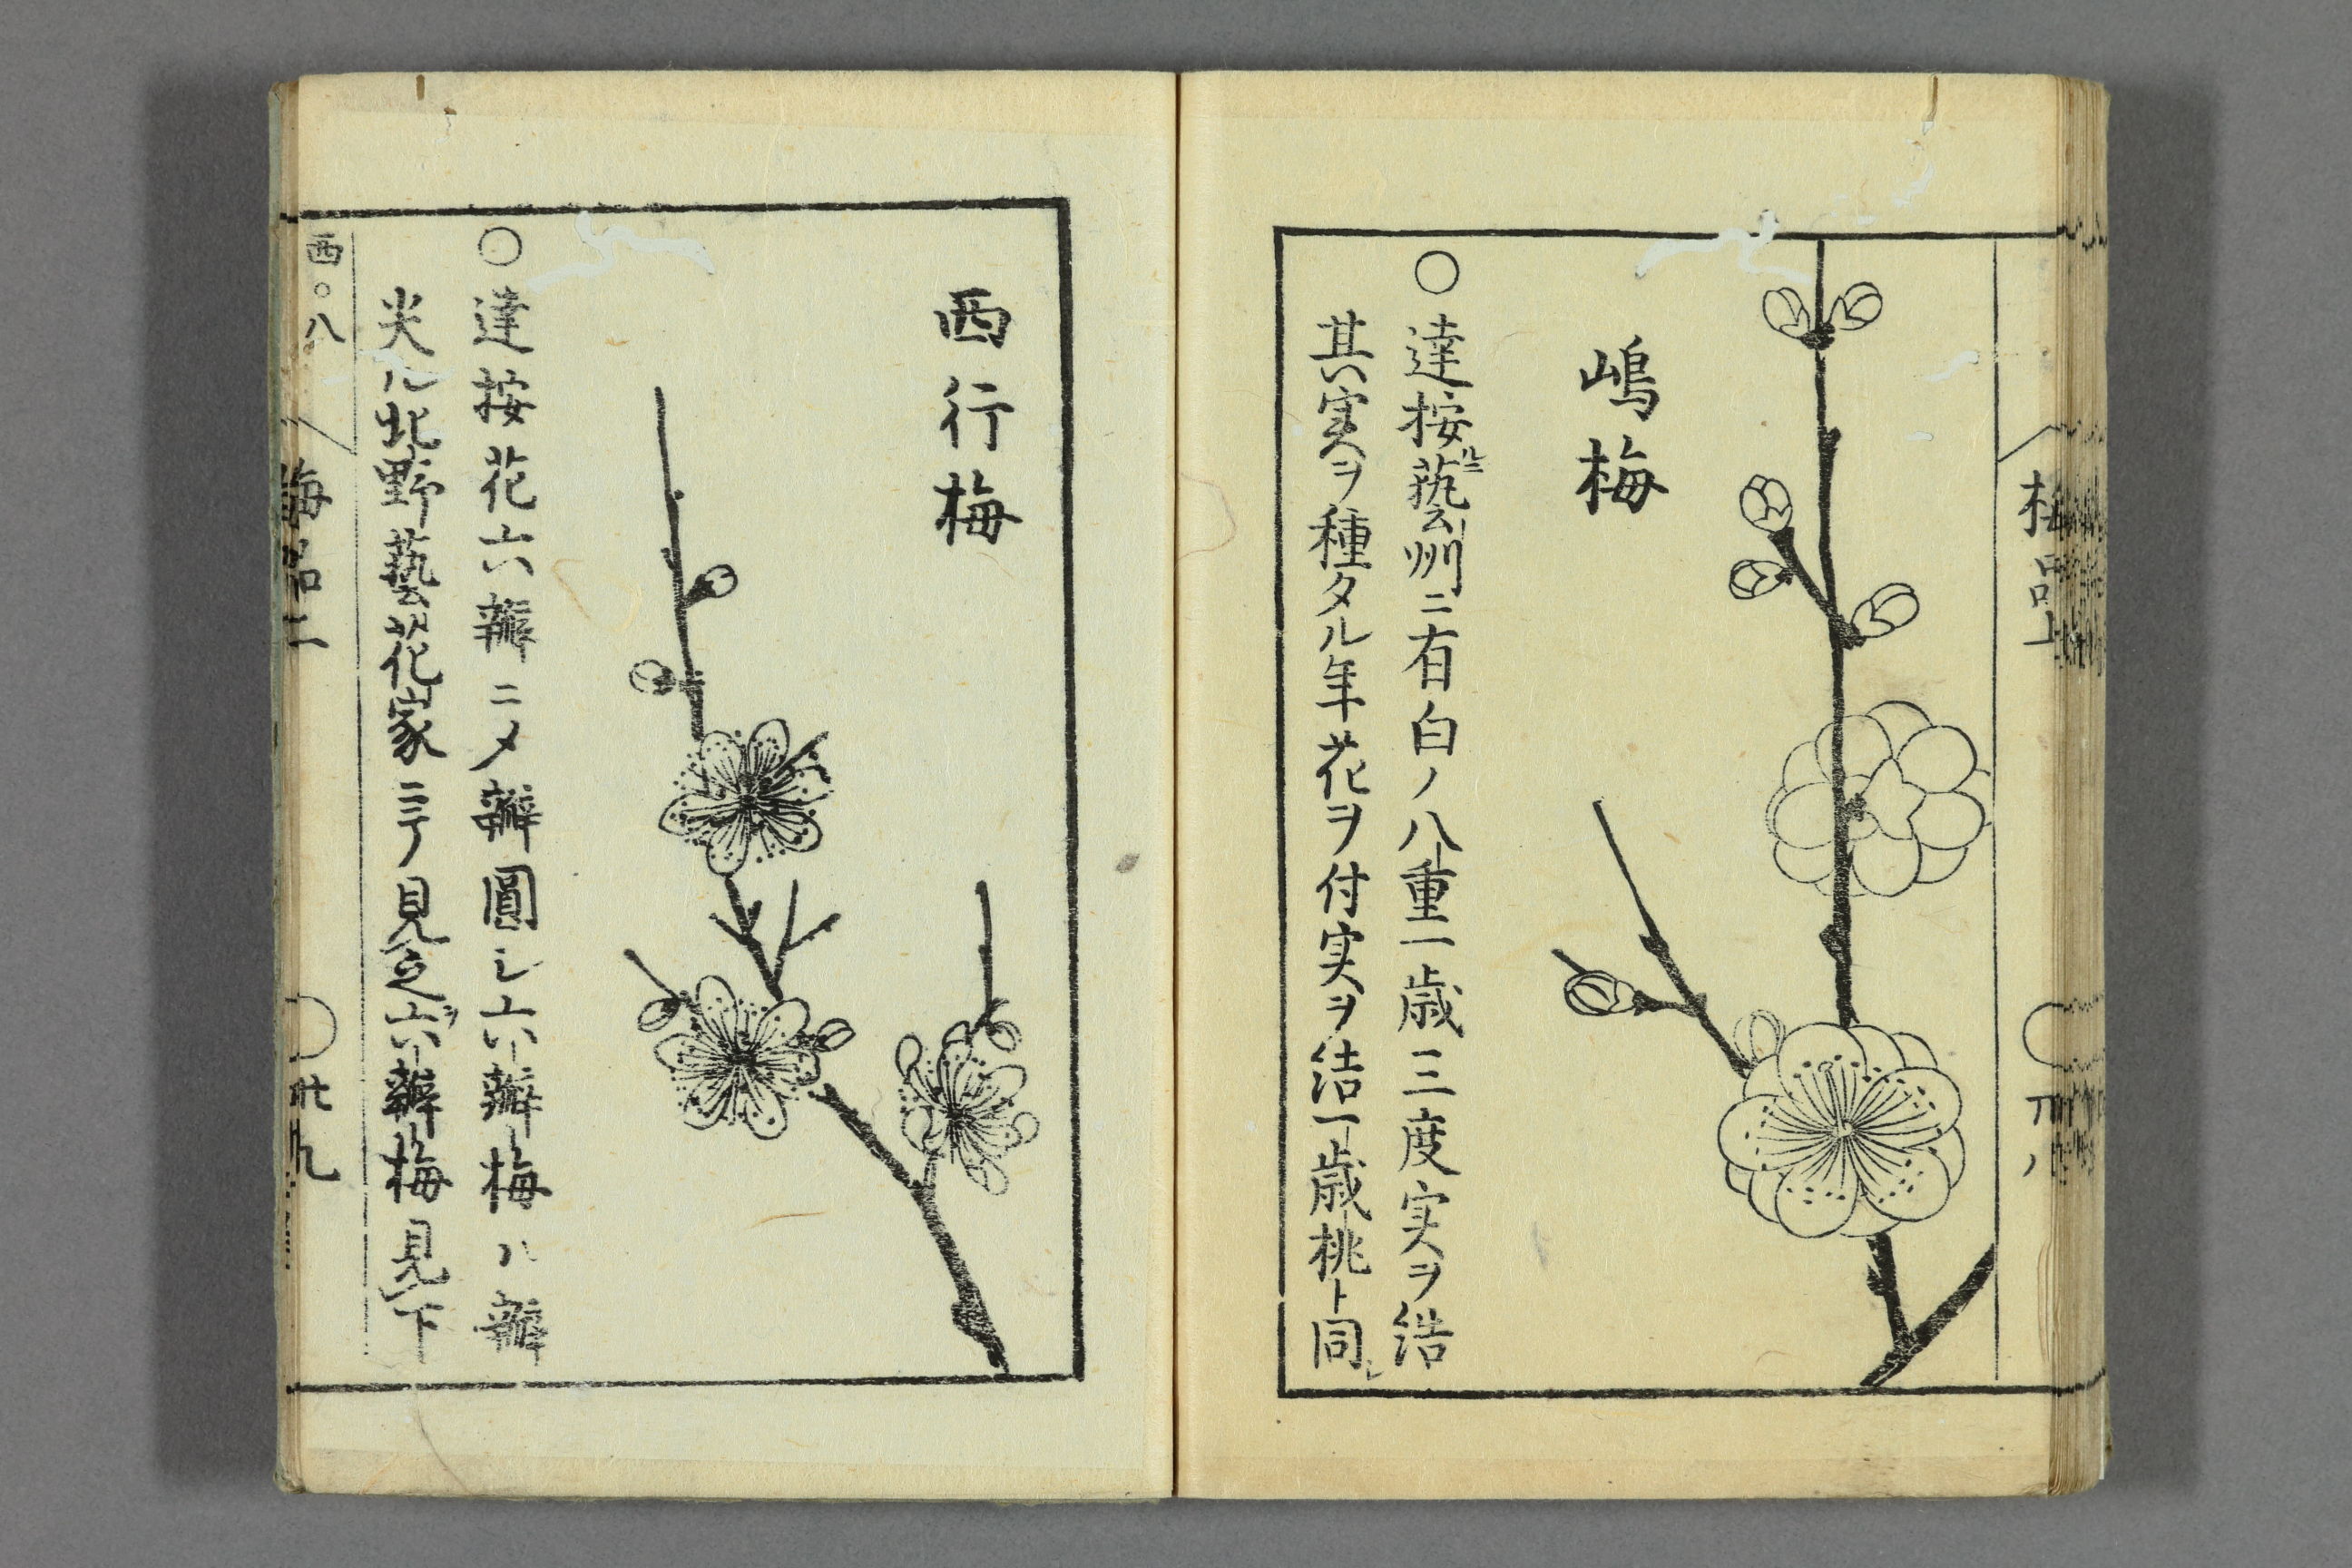 梅品上
嶋梅
〇達按ルニ藝州ニ有白ノ八重一歳三度実ヲ結
其実ヲ種タル年花ヲ付実ヲ結一歳桃ト同シ
西行梅
〇達按花六瓣ニメ瓣圓シ六瓣梅ハ瓣
尖ル北野藝花家ニテ見之六瓣梅見下
西〇八
梅品二
廿九